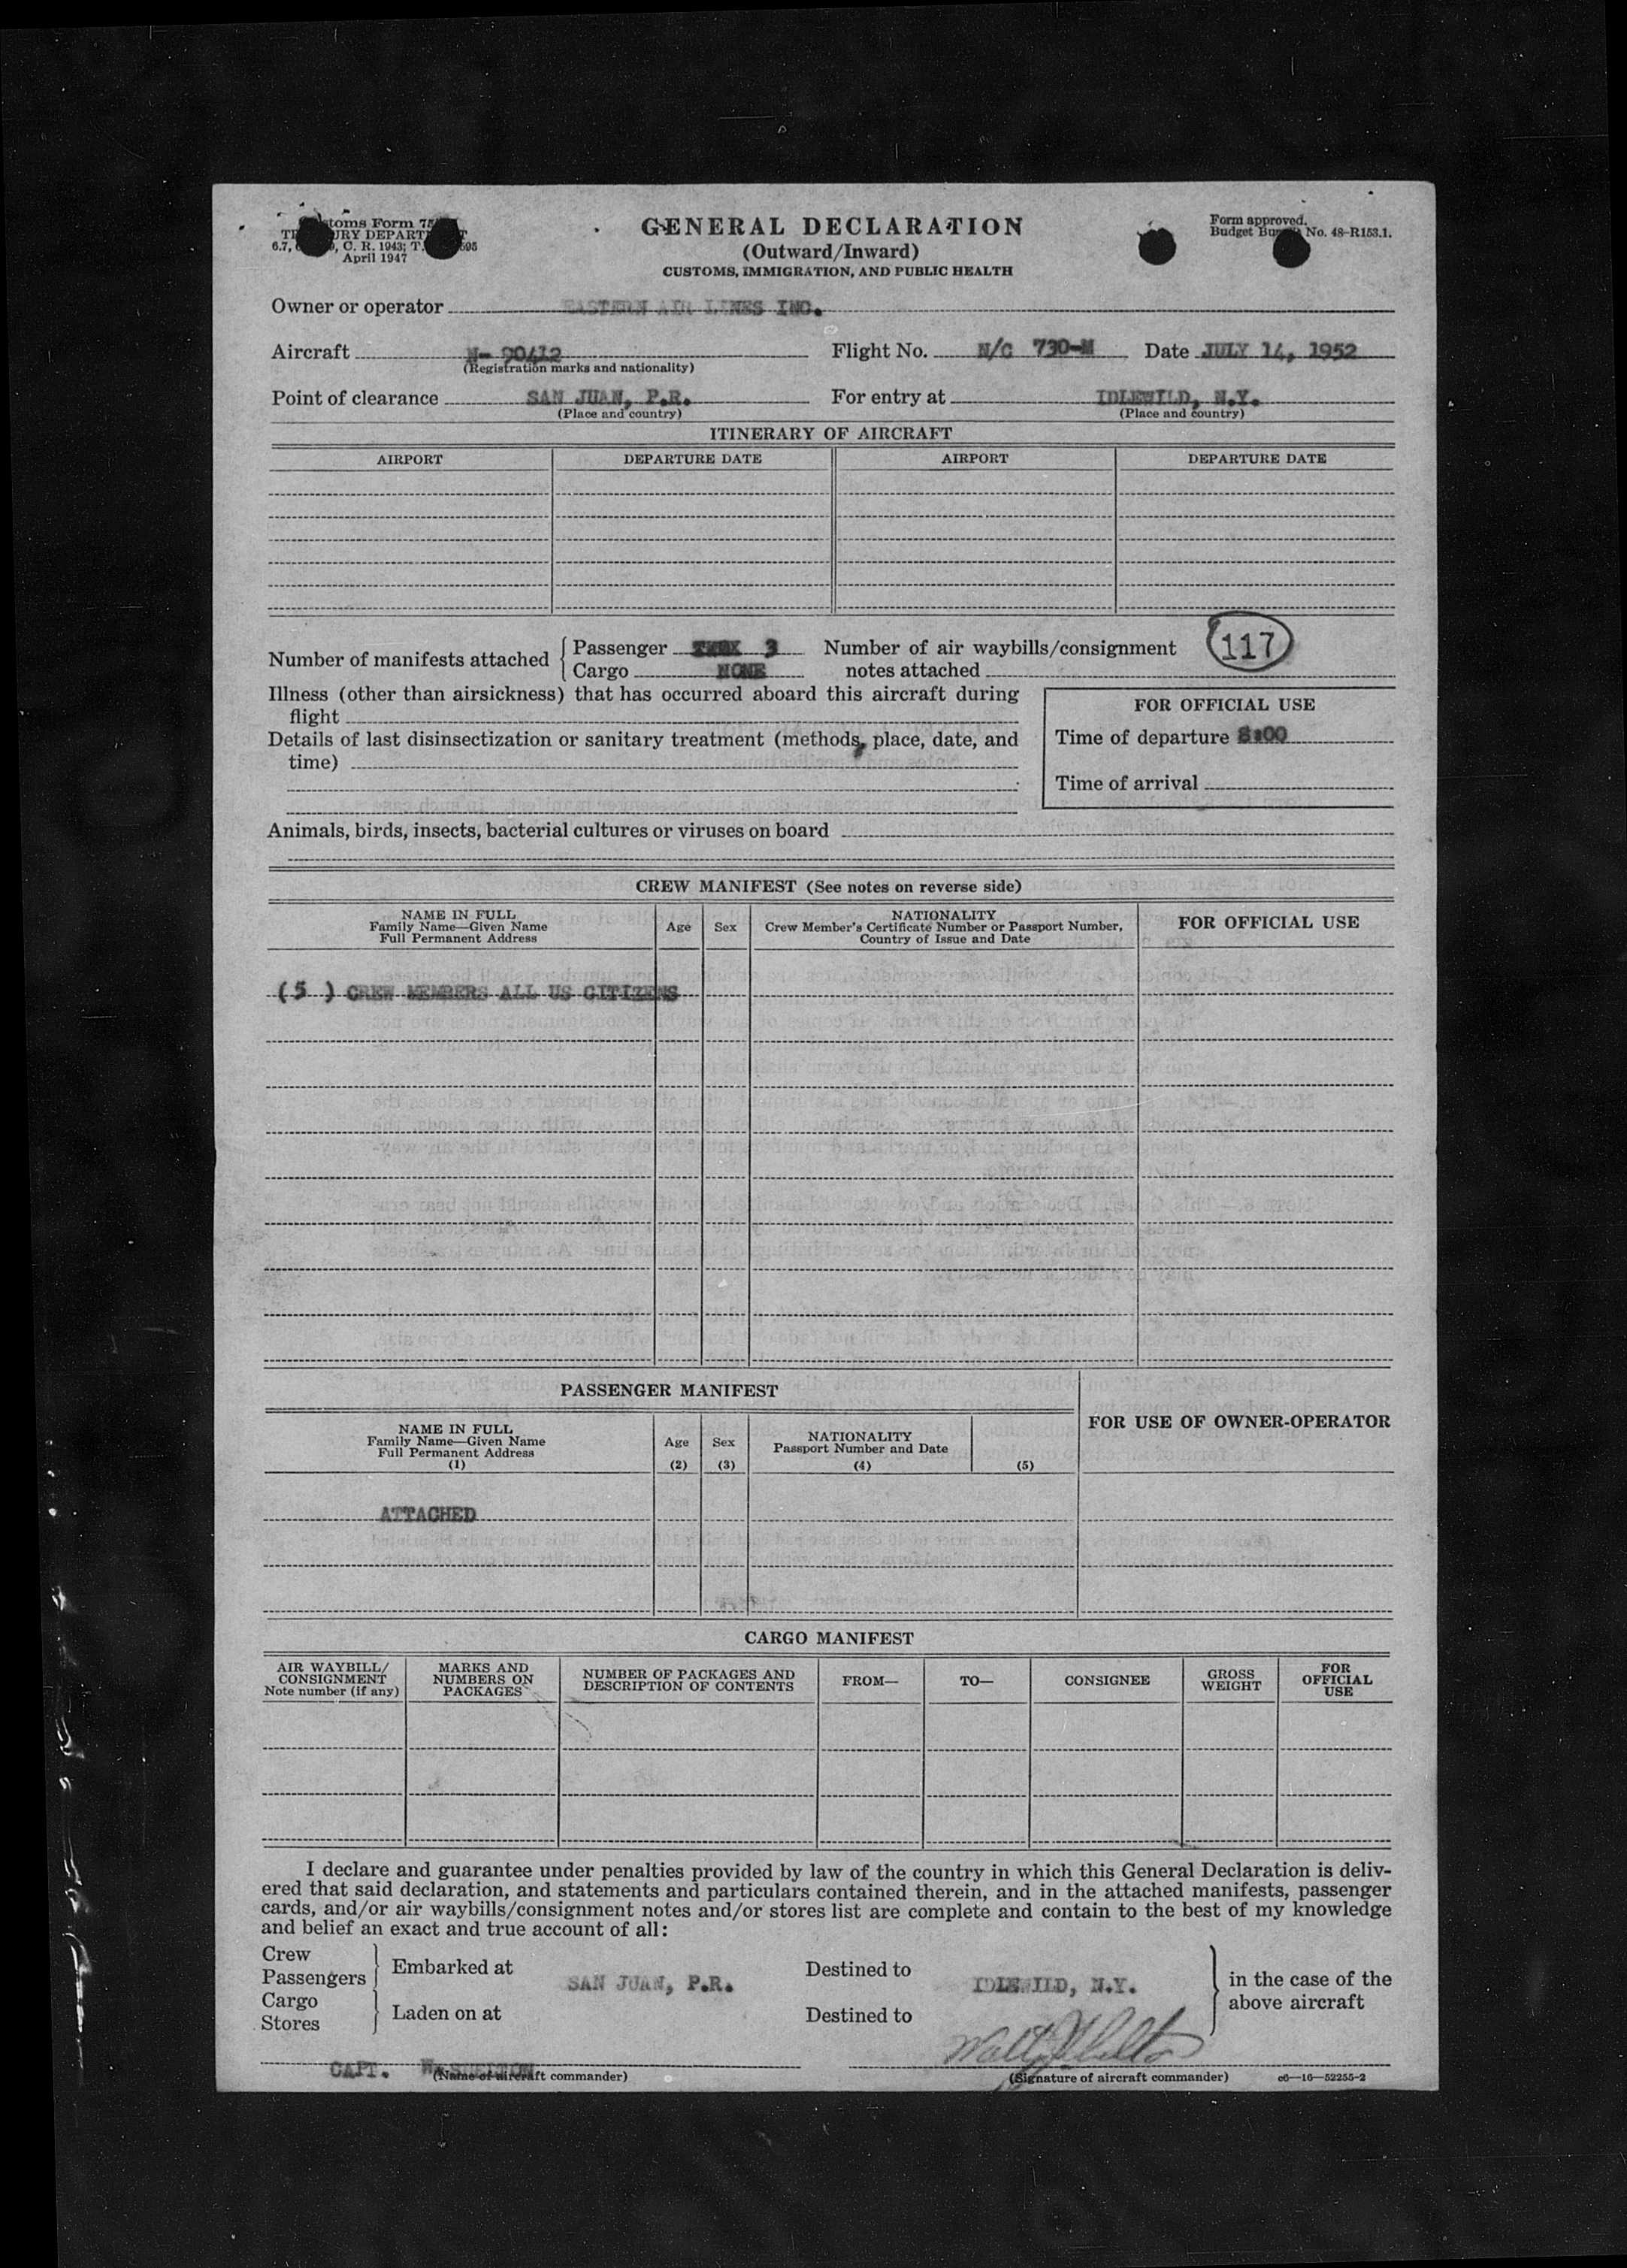 toms Form 75
GENERAL DECLARATION
Form approved.
URY DEPART
(Outward/Inward)
Budget No. 48-R153.1.
6.7, , C. R. 1943; T. 595
April 1947
CUSTOMS, IMMIGRATION, AND PUBLIC HEALTH
Owner or operator EASTERN AIR LINES INC.
Aircraft N- 90412 Flight No. N/C 730-M Date JULY 14, 1952
(Registration marks and nationality)
Point of clearance SAN JUAN, P.R. For entry at IDLEWILD, N.Y.
(Place and country) (Place and country)
ITINERARY OF AIRCRAFT
AIRPORT DEPARTURE DATE AIRPORT DEPARTURE DATE
Number of manifests attached { Passenger 3 Number of air waybills/consignment 117
Cargo NONE notes attached
Illness (other than airsickness) that has occurred aboard this aircraft during
flight
FOR OFFICIAL USE
Details of last disinsectization or sanitary treatment (methods, place, date, and
time)
Time of departure 8:00
Time of arrival
Animals, birds, insects, bacterial cultures or viruses on board
CREW MANIFEST (See notes on reverse side)
NAME IN FULL
Family Name—Given Name
Full Permanent Address
Age
Sex
NATIONALITY
Crew Member's Certificate Number or Passport Number,
Country of Issue and Date
FOR OFFICIAL USE
(5 ) CREW MEMBERS ALL US CITIZENS
PASSENGER MANIFEST
FOR USE OF OWNER-OPERATOR
NAME IN FULL
Family Name—Given Name
Full Permanent Address
(1)
Age
(2)
Sex
(3)
NATIONALITY
Passport Number and Date
(4)
(5)
ATTACHED
CARGO MANIFEST
AIR WAYBILL/
CONSIGNMENT
Note number (if any)
MARKS AND
NUMBERS ON
PACKAGES
NUMBER OF PACKAGES AND
DESCRIPTION OF CONTENTS
FROM—
TO—
CONSIGNEE
GROSS
WEIGHT
FOR
OFFICIAL
USE
I declare and guarantee under penalties provided by law of the country in which this General Declaration is deliv-
ered that said declaration, and statements and particulars contained therein, and in the attached manifests, passenger
cards, and/or air waybills/consignment notes and/or stores list are complete and contain to the best of my knowledge
and belief an exact and true account of all:
Crew
Passengers
Embarked at SAN JUAN, P.R. Destined to IDLEWILD, N.Y.
Cargo
Stores
Laden on at Destined to
in the case of the
above aircraft
CAPT. W. SHELTON
(Name of aircraft commander)
(Signature of aircraft commander)
c6—16—52255-2